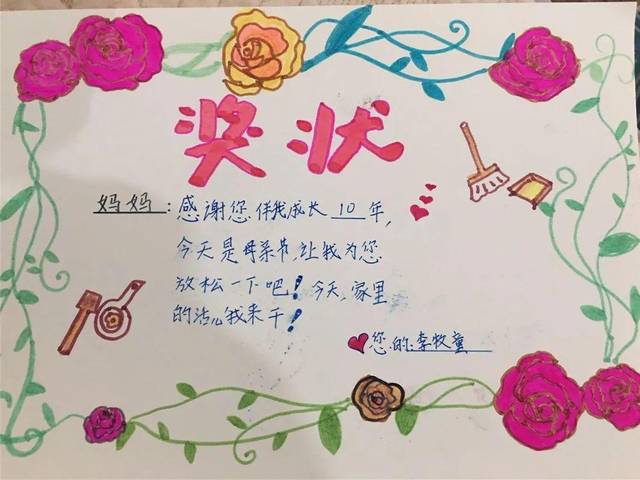 奖状
妈妈:感谢您伴我成长10年,
今天是母亲节,让我为您
放松一下吧!今天,家里
的活儿我来干!
您的:李牧童